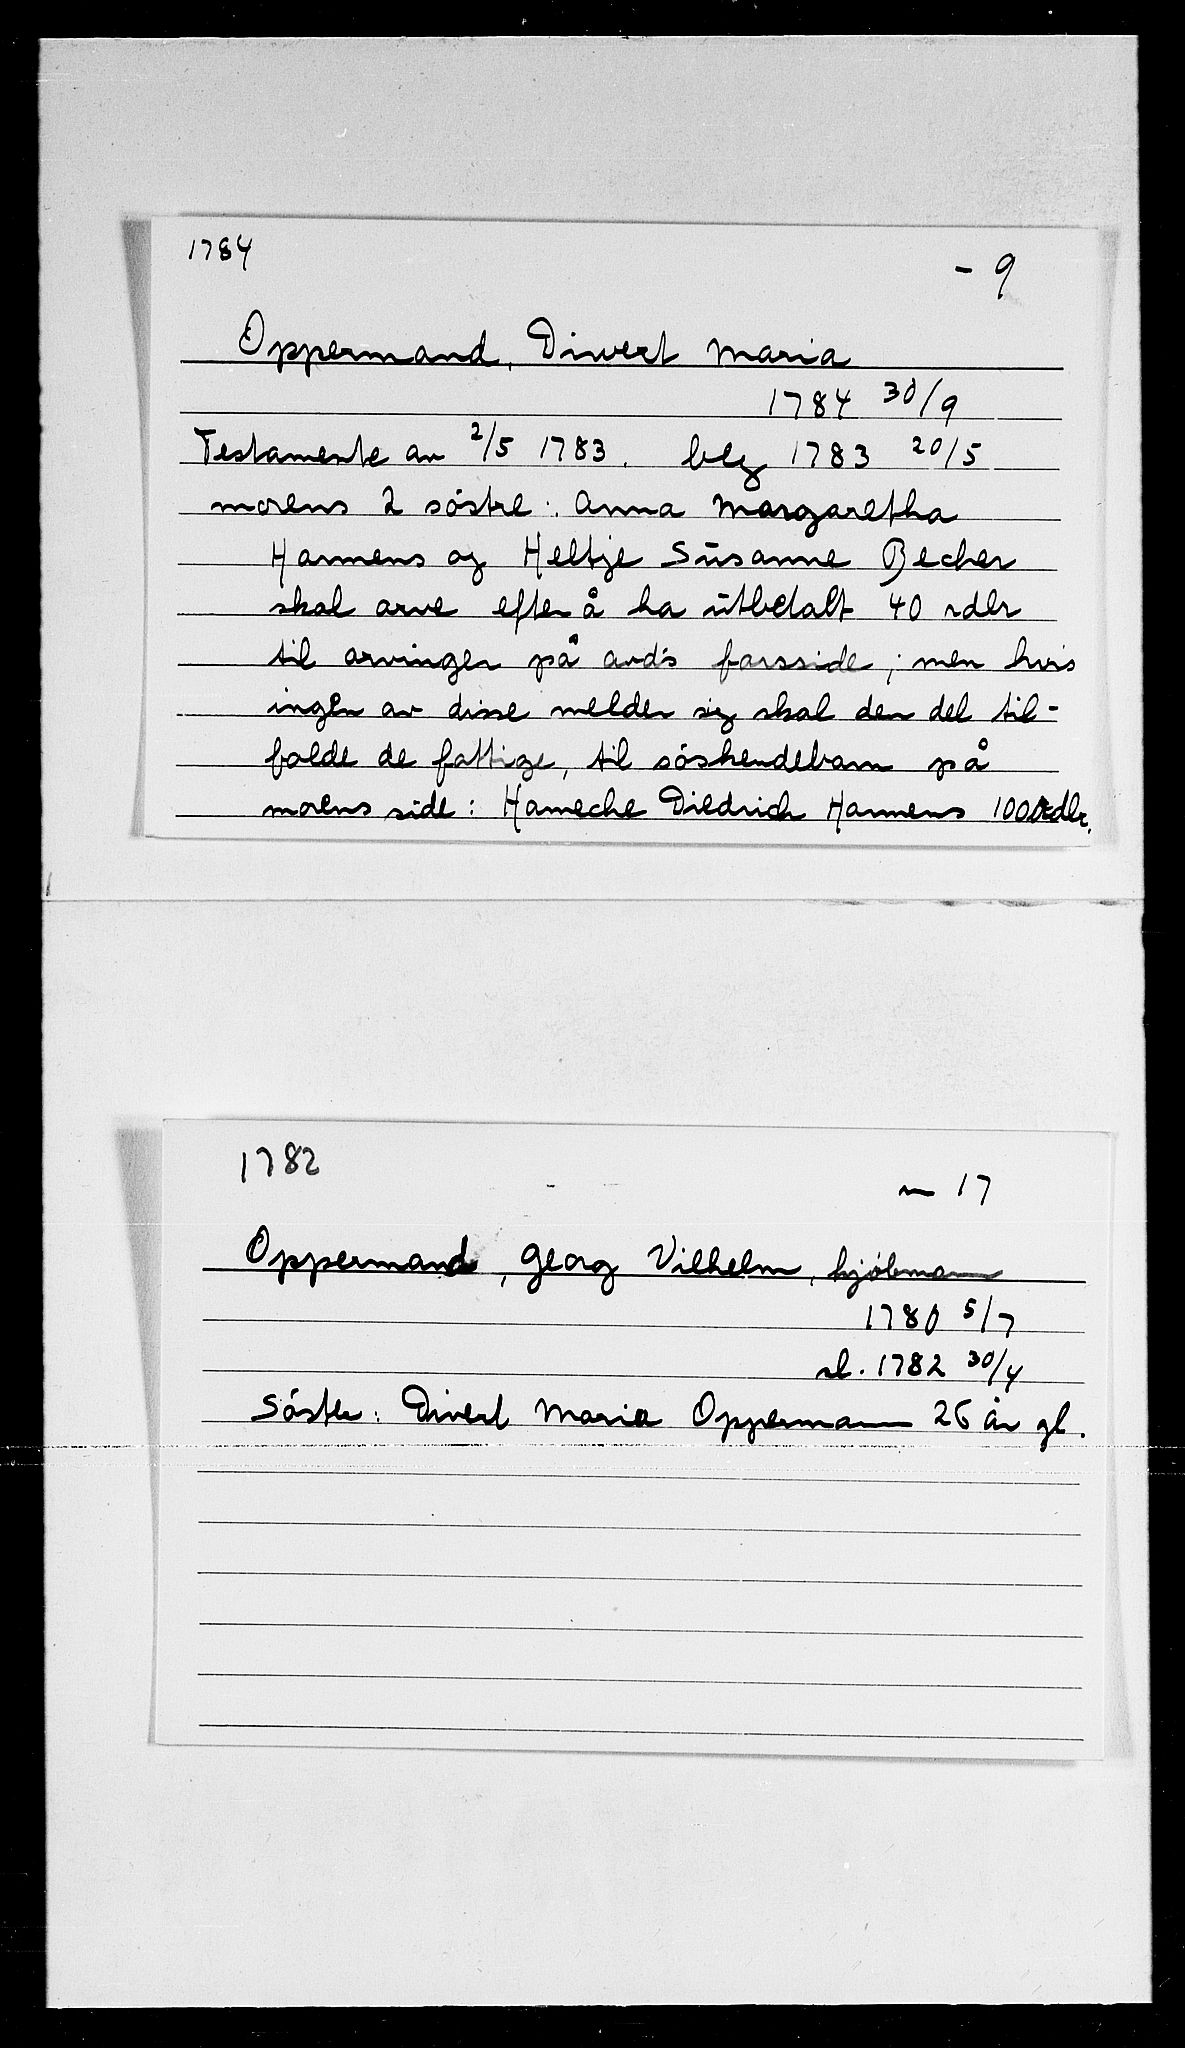 1784
- 9
Oppermand, Diwert Maria
1784 30/9
Testamente av 2/5 1783. beg 1783 20/5
morens 2 söstre: Anna Margaretha
Harmens og Heltje Süsanne Becher
skal arve efter å ha ütbetalt 40 rdlr
til arvinger på avd's farsside; men hvis
ingen av disse melder sig skal den del til-
falde de fattige, til söskendebarn på
morens side: Harneche Diedrich Harmens 1000rdlr.
1782
17
Oppermand, Georg Vilhelm, kjøbmann
1780 5/7
sl. 1782 30/4
Söster: Divert Maria Oppermann 26 år gl.